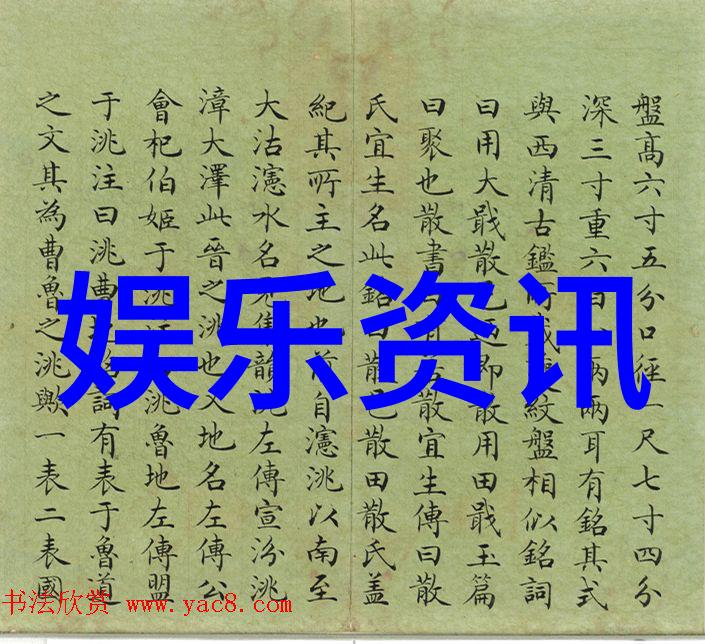 盤高六寸五分口徑一尺七寸四分
深三寸重六百兩兩耳有銘其式
與西清古鑑所載紋盤相似銘詞
曰用大戢散邑迺即散用田戢玉篇
曰聚也散書有散宜生傳曰散
氏宜生名此銘曰散邑散田散氏蓋
紀其所主之地也前自瀗洮以南至
大沽瀗水名見集韻洮左傳宣汾洮
漳大澤此晉之洮也又地名左傳公
會杞伯姬于洮洮魯地左傳盟
于洮注曰洮曹地銘詞有表于魯道
之文其為曹魯之洮歟一表二表國
娱乐资讯
书法欣赏 www.yac8.com